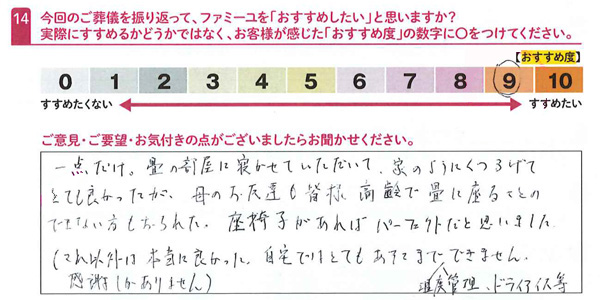 14 今回のご葬儀を振り返って、ファミーユを「おすすめしたい」と思いますか?
実際にすすめるかどうかではなく、お客様が感じた「おすすめ度」の数字に○をつけてください。
【おすすめ度】
0 1 2 3 4 5 6 7 8 9 10
すすめたくない すすめたい
ご意見・ご要望・お気付きの点がございましたらお聞かせください。
一点だけ。畳の部屋に寝かせていただいて、家のようにくつろげて
とても良かったが、母のお友達も皆様、高齢で畳に座ることの
できない方もおられた。座椅子があればパーフェクトだと思いました
(これ以外は本当に良かった。自宅ではとてもあそこまでできません。
感謝しかありません) 温度管理、ドライアイス等